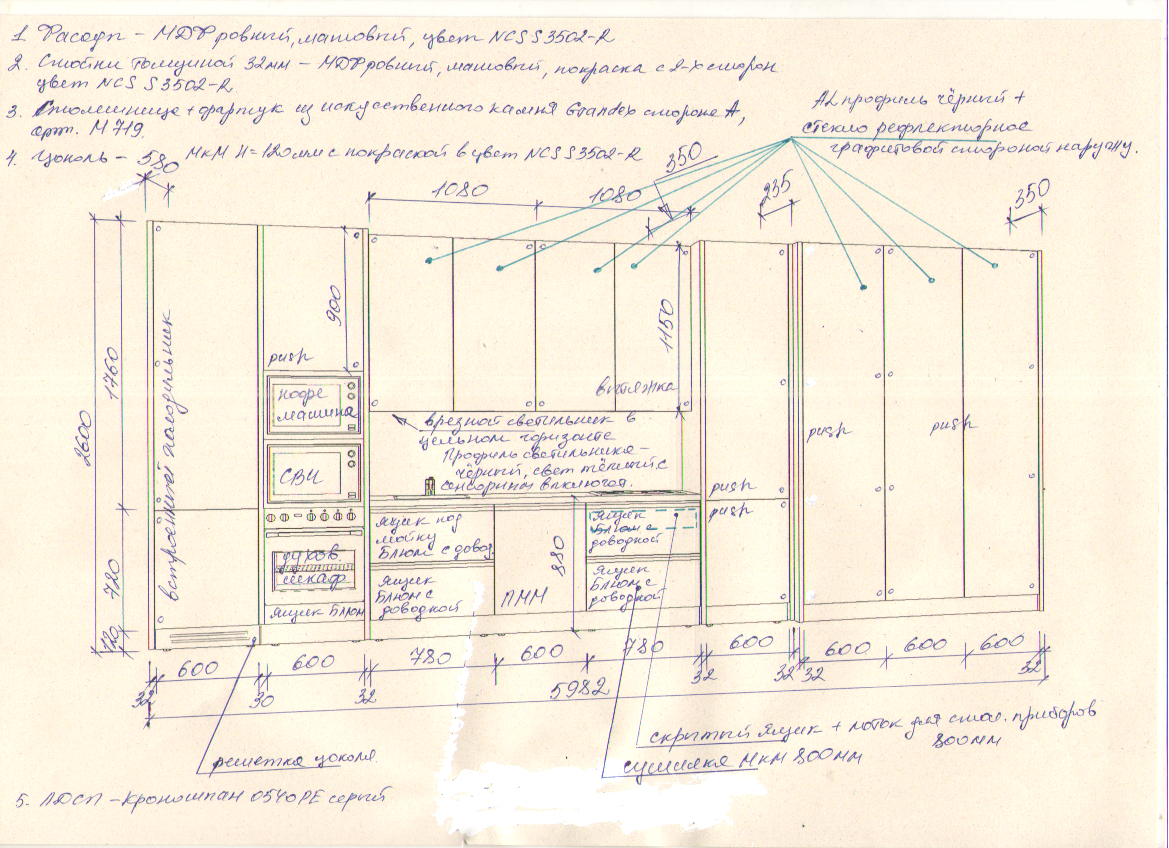 1. Фасады – МДФ ровный, матовый, цвет NCS S3502-R
2. Стойки толщиной 32мм – МДФ ровный, матовый, покраска с 2-х сторон
цвет NCS S3502-R
3. Столешница + фартук из искусственного камня Grandex стороне А,
арт. М 719.
4. Цоколь – МКМ H=120мм с покраской в цвет NCS S3502-R
AL профиль чёрный +
стекло рефлекторное
графитовой стороной наружу.
580
1080
1080
350
235
350
2600
1760
720
120
встроенный холодильник
900
1150
push
кофе
машина
СВЧ
духов.
шкаф
ящик Блюм
вытяжка
врезной светильник в
цельном горизонте
Профиль светильника –
чёрный, свет тёплый с
сенсорным включат.
ящик под
мойку
Блюм с довод.
ящик
Блюм с
доводкой
ПММ
880
ящик
Блюм с
доводкой
ящик
Блюм с
доводкой
push
push
push
push
600
600
780
600
780
600
600
600
600
32
30
32
32
32
32
32
5982
решетка цоколя.
скрытый ящик + лоток для стол. приборов
800мм
сушилка МКМ 800мм
5. ЛДСП – Кроношпан 0540PE серый